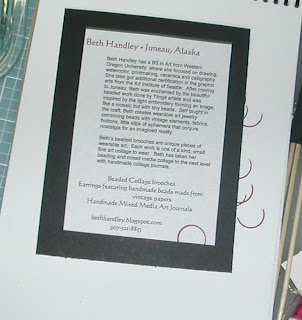 Beth Handley • Juneau, Alaska
Beth Handley has a BS in Art from Western
Oregon University, where she focused on drawing,
watercolor, printmaking, ceramics and calligraphy.
She later got additional certification in the graphic
arts from the Art Institute of Seattle. After moving
to Juneau, Beth was enchanted by the beautiful
beaded work done by Tlingit artists and was
inspired by the tight embroidery forming an image,
like a mosaic but with tiny beads. Self taught in
the craft, Beth creates wearable art jewelry
combining beads with vintage elements, fabrics,
buttons, little slips of ephemera that conjure
nostalgia for an imagined reality.
Beth's beaded brooches are unique pieces of
wearable art. Each work is one of a kind, small
fine art collage to wear. Beth has taken her
beading and mixed media collage to the next level
with handmade collage journals.
Beaded Collage brooches
Earrings featuring handmade beads made from
vintage papers
Handmade Mixed Media Art Journals
bethhandley.blogspot.com
907-321-8851